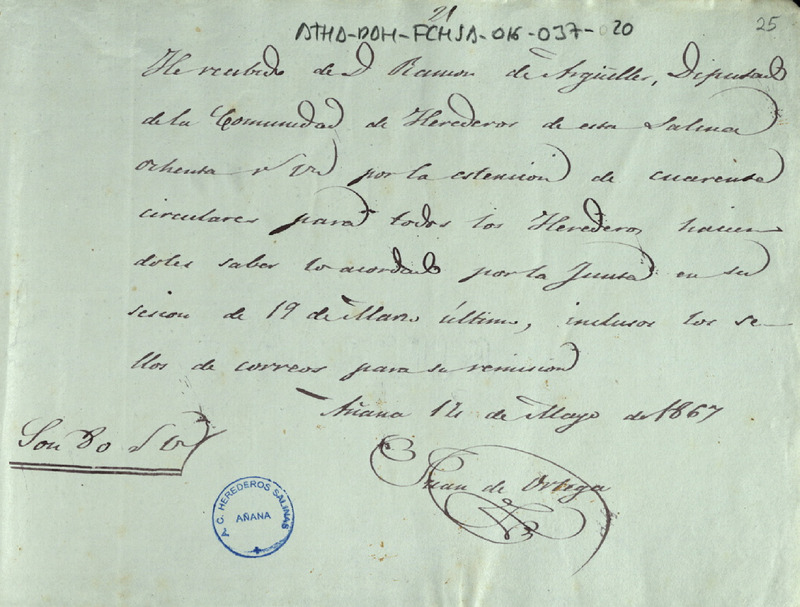 21
25
ATHA-DAH-FCHSA-016-037-020
He recibido de D Ramon de Argüelles, Diputado
de la Comunidad de Herederos de esta Salina
ochenta rs vn por la estension de cuarenta
circulares para todos los Herederos hacien
doles saber lo acordado por la Junta en su
sesion de 19 de Marzo último, inclusos los se-
llos de correos para su remision
Añana 14 de Mayo de 1867
Son 80 rs vn
Juan de Ortega
A. C. HEREDEROS SALINAS
AÑANA